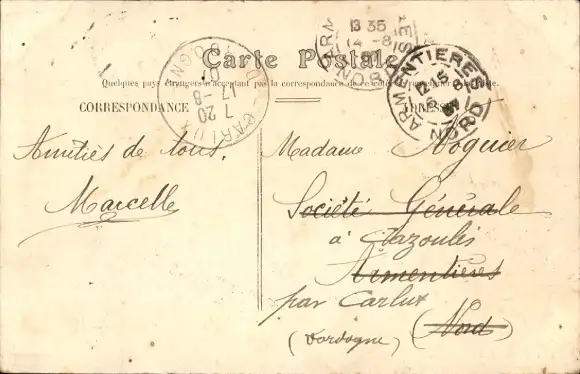 Carte Postale
Quelques pays étrangers n'acceptant pas la correspondance de ce côté
CORRESPONDANCE
ADRESSE
Amitiés de tous,
Marcelle
Madame Noguier
Société Générale
à Cazoulès
Armentières
par Carlux
(Dordogne)
(Nord)
13 35
14 -8
ARMENTIERES
12 15
NORD
CARLUX
7 20
17 -8